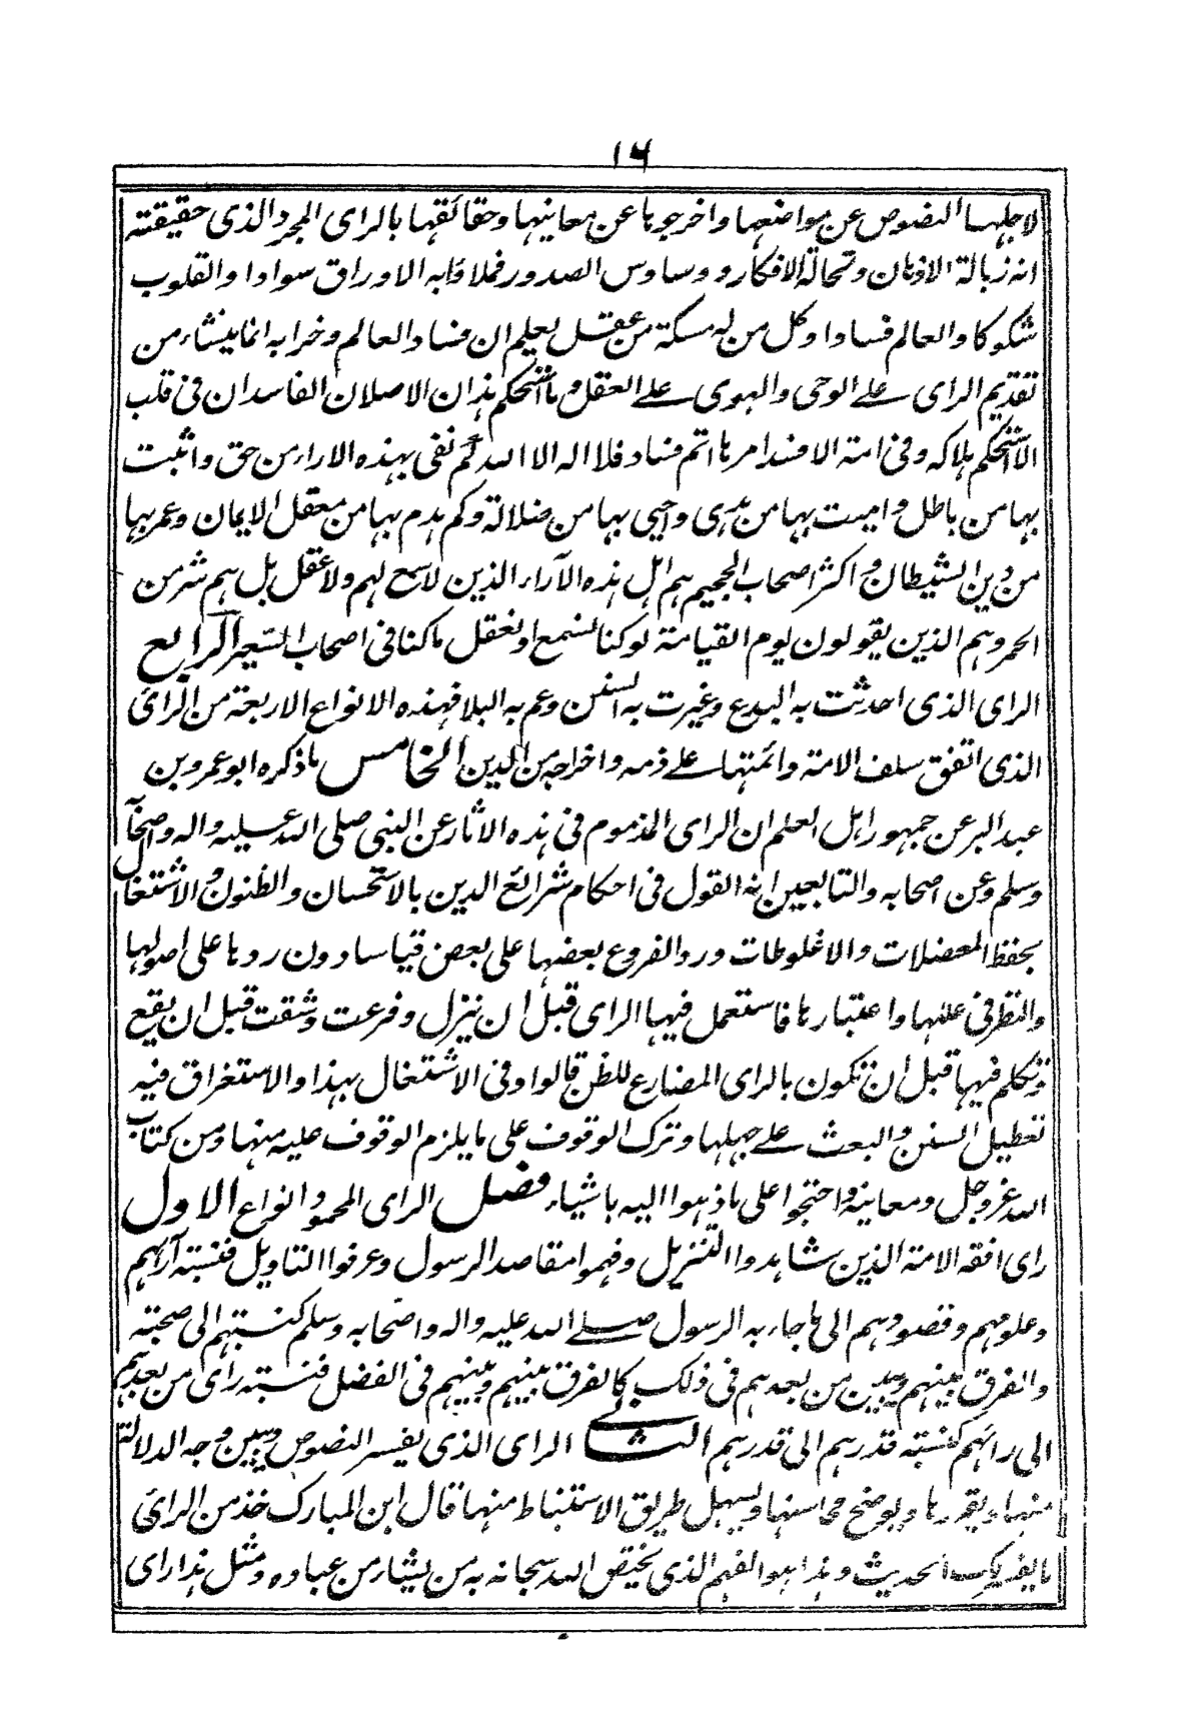 ١٦
لاجلها النصوص عن مواضعها واخرجوها عن معانيها وحقائقها بالراى المجرد الذى حقيقته
انه زبالة الاذهان ونحالة الافكار ووساوس الصدور فملاؤابه الاوراق سوادا والقلوب
شكوكا والعالم فسادا وكل من له مسكة من عقل يعلم ان فساد العالم وخرابه انما ينشاء من
تقديم الراى على الوحى والهوى على العقل وما استحكم هذان الاصلان الفاسدان فى قلب
الا استحكم هلاكه وفى امة الا فسد امرها اتم فساد فلا اله الا الله كم نفى بهذه الاراء من حق واثبت
بها من باطل واميت بها من هدى واحيى بها من ضلالة وكم هدم بها من معقل الايمان وعمر بها
من دين الشيطان واكثر اصحاب الجحيم هم اهل هذه الآراء الذين لا سمع لهم ولا عقل بل هم شر من
الحمر وهم الذين يقولون يوم القيامة لو كنا نسمع او نعقل ما كنا فى اصحاب السعير الرابع
الراى الذى احدثت به البدع وغيرت به السنن وعم به البلا فهذه الانواع الاربعة من الراى
الذى اتفق سلف الامة وائمتها على ذمه واخراجه من الدين الخامس ما ذكره ابو عمرو بن
عبد البر عن جمهور اهل العلم ان الراى المذموم فى هذه الاثار عن النبى صلى الله عليه واله واصحابه
وسلم وعن اصحابه والتابعين انه القول فى احكام شرائع الدين بالاستحسان والظنون والاشتغال
بحفظ المعضلات والاغلوطات ورد الفروع بعضها على بعض قياسا دون ردها على اصولها
والنظر فى عللها واعتبارها فاستعمل فيها الراى قبل ان ينزل وفرعت وشققت قبل ان يقع
وتكلم فيها قبل ان تكون بالراى المضارع للظن قالوا وفى الاشتغال بهذا والاستغراق فيه
تعطيل السنن والبعث على جهلها وترك الوقوف على ما يلزم الوقوف عليه منها ومن كتاب
الله عز وجل ومعانيه واحتجوا على ما ذهبوا اليه باشياء فصل الراى المحمود انواع الاول
راى افقه الامة الذين شاهدوا التنزيل وفهموا مقاصد الرسول وعرفوا التاويل فنسبة آرائهم
وعلومهم وقصودهم الى ما جاء به الرسول صلى الله عليه واله واصحابه وسلم كنسبتهم الى صحبته
والفرق بينهم وبين من بعدهم فى ذلك كالفرق بينهم وبينهم فى الفضل فنسبة راى من بعدهم
الى رائهم كنسبة قدرهم الى قدرهم الثانى الراى الذى يفسر النصوص ويبين وجه الدلالة
منها ويقررها ويوضح محاسنها ويسهل طريق الاستنباط منها قال ابن المبارك خذ من الراى
ما يفسر لك الحديث وهذا هو الفهم الذى يختص الله سبحانه به من يشاء من عباده ومثل هذا راى